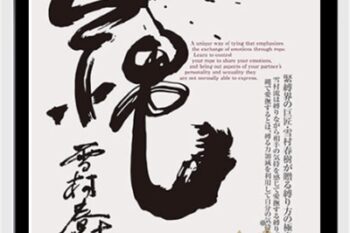 縄
A unique way of tying that emphasizes
the exchange of emotions through rope.
Learn to control
your rope to share your emotions,
and bring out aspects of your partner's
personality and sexuality they
are not normally able to express.
緊縛界の巨匠・雪村春樹が贈る縛り方の極
雪村流は縛りながら相手の気持を感じて愛撫する縛り
縄で愛撫するとは、縛る力加減を利用して自分の気
雪村春樹